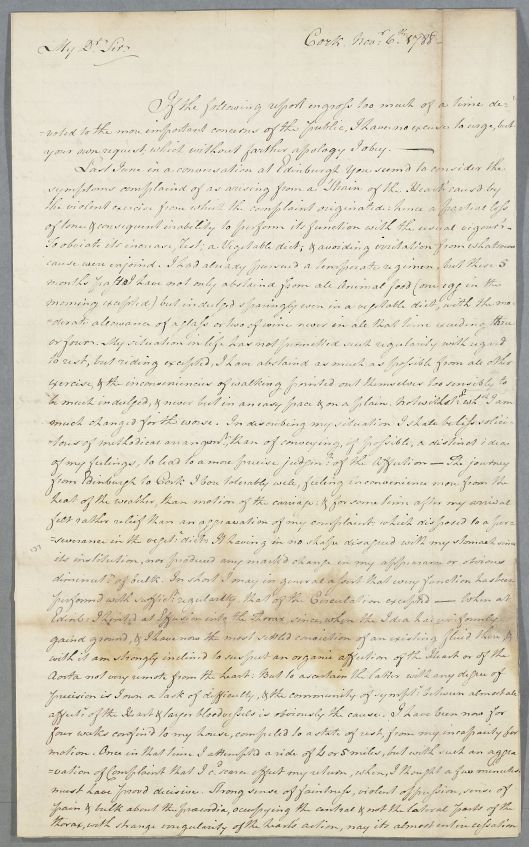 Cork. Novr. 6th. 1788 -
My Dr. Sir
If the following report engross too much of a time de-
-voted to the more important concerns of the public, I have no excuse to urge, but
your own request, which without farther appology I obey. —
Last June in a conversation at Edinburgh you seem'd to consider the
symptoms complained of as arising from a Strain of the Heart caus'd by
the violent exercise from which the complaint originated: hence a partial loss
of tone & consequent inability to perform its function with the usual vigour.
To obviate its increase, rest, a Vegitable diet, & avoiding irritation from whatsoever
cause were enjoin'd. I had already pursued a temperate regimen, but these 5
months past I have not only abstained from all Animal food (one egg in the
morning excepted) but indulged sparingly even in a vegetable diet, with the mo-
-derate allowance of a glass or two of wine never in all that time exceeding three
or four. My situation in life has not permitted such regularity with regard
to rest, but riding excepted, I have abstained as much as possible from all other
exercise, & the inconveniences of walking pointed out themselves too sensibly to
be much indulged, & never but in an easy pace & on a plain. Notwithstg. wh. I am
much changed for the worse. In describing my situation I shall be less solici-
-tous of methodical arrangemt. than of conveying, if possible, a distinct idea
of my feelings, to lead to a more precise judgmt. of the Affection — The journey
from Edinburgh to Cork I bore tolerably well, feeling inconvenience more from the
heat of the weather, than motion of the carriage: & for some time after my arrival
felt rather relief than an aggravation of my complaint: which disposed to a per-
-severance in the veget: diet: It having in no shape disagreed with my stomach since
its institution, nor produced any mark'd change in my appearance or obvious
diminutn. of bulk. In short I may in general assert that every function has been
performed with sufficit. regularity that of the Circulation excepted — When at
Edinb. I hinted at Effusion into the thorax, since when the Idea has uniformly
gain'd ground, & I have now the most settled conviction of an existing fluid there, &
with it am strongly inclined to suspect an organic affection of the Heart or of the
Aorta not very remote from the heart. But to ascertain the latter with any degree of
precision is I own a task of difficulty, & the community of sympts. between almost all
affectns. of the Heart & larger bloodvessels is obviously the cause. I have been now for
four weeks confin'd to my house, compell'd to a state of rest, from my incapacity for
motion. Once in that time I attempted a ride of 4 or 5 miles, but with such an aggra-
-vation of Complaint that I cd. scarce effect my return, when, I thought a few minutes
must have proved decisive. Strong sense of faintness, violent oppression, sense of
pain & bulk about the præcordia, occupying the central & not the lateral parts of the
thorax, with strange irregularity of the hearts action, nay its almost entire cessation